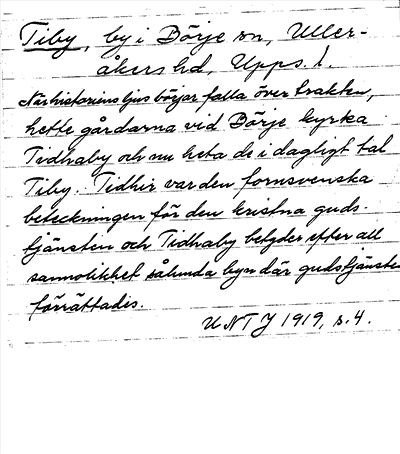 Tiby, by i Börje sn, Uller-
åkers hd, Upps. l.
När historiens ljus börjar falla över trakten,
hette gårdarna vid Börje kyrka
Tidhaby och nu heta de i dagligt tal
Tiby. Tidhir var den fornsvenska
beteckningen för den kristna guds-
tjänsten och Tidhaby betyder efter all
sannolikhet sålunda byn där gudstjänsten
förrättadis.
UNTJ 1919, s. 4.